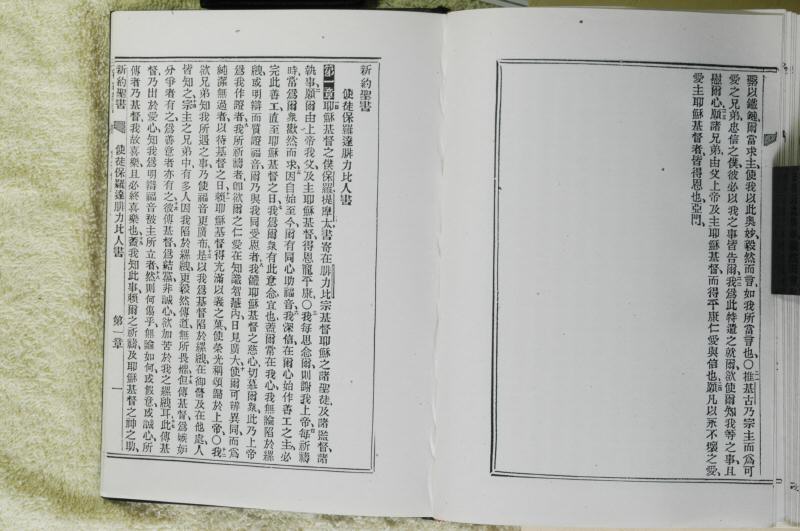 繫以鐵鏈爾當求主使我以此奧妙毅然而言如我所當言也〇推基古乃宗主而爲可
愛之兄弟忠信之僕彼必以我之事皆告爾我爲此特遣之就爾欲使爾知我等之事且
慰爾心願諸兄弟由父上帝及主耶穌基督而得平康仁愛與信也願凡以永不壞之愛
愛主耶穌基督者皆得恩也亞門
新約聖書
使徒保羅達腓力比人書
第一章耶穌基督之僕保羅提摩太書寄在腓力比宗基督耶穌之諸聖徒及諸監督諸
執事願爾由上帝我父及主耶穌基督得恩寵平康〇我每思念爾則謝我上帝每祈禱
時常爲爾衆歡然而求因自始至今爾有同心助福音我深信在爾心始作善工之主必
完此善工直至耶穌基督之日我爲爾衆有此意念宜也蓋爾常在我心我無論陷於縲
絏或明辯而質證福音爾乃與我同受恩者我體耶穌基督之慈心切慕爾衆此乃上帝
爲我作證者我所祈禱者卽欲爾之仁愛在知識智慧內日見廣大使爾可辨異同而爲
純潔無過者以待基督之日賴耶穌基督得充滿以義之菓使榮光稱頌歸於上帝〇我
欲兄弟知我所遇之事乃使福音更廣布是以我爲基督陷於縲絏在御營及在他處人
皆知之宗主之兄弟中有多人因我陷於縲絏更毅然傳道無所畏懼但傳基督爲嫉妬
分爭者有之爲善意者亦有之彼傳基督爲結黨非誠心欲加苦於我之縲絏耳此傳基
督乃出於愛心知我爲明辯福音被主所立者然則何傷乎無論如何或假意或誠心所
傳者乃基督我故喜樂且必終喜樂也蓋我知此事賴爾之祈禱及耶穌基督之神之助
新約聖書 使徒保羅達腓力比人書 第一章 一